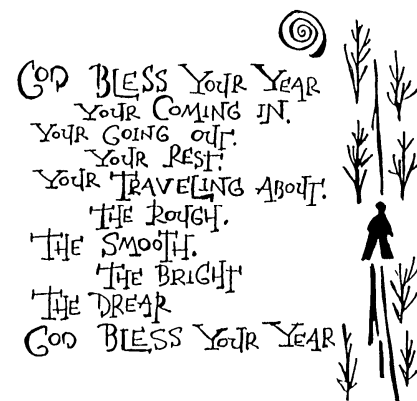 GOD BLESS YOUR YEAR
YOUR COMING IN.
YOUR GOING OUT.
YOUR REST.
YOUR TRAVELING ABOUT.
THE ROUGH.
THE SMOOTH.
THE BRIGHT
THE DREAR
GOD BLESS YOUR YEAR